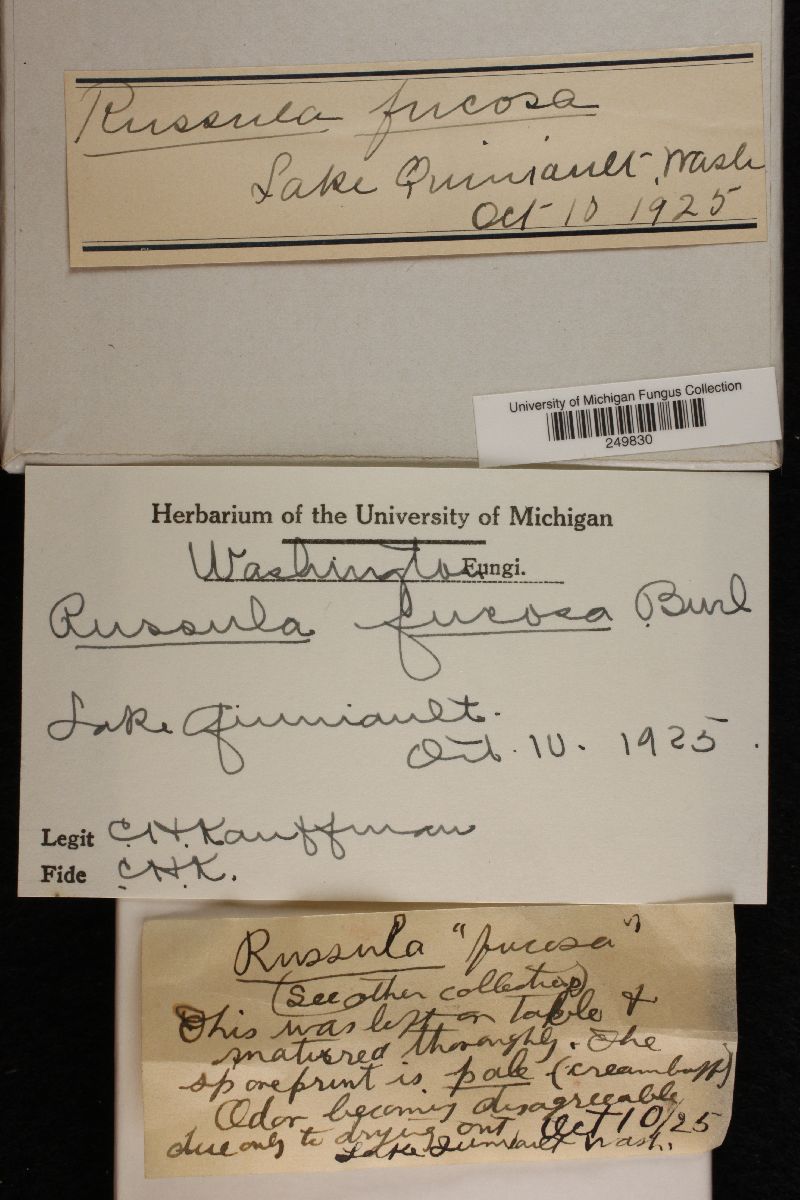 Russula fucosa
Lake Quiniault, Wash
Oct 10 1925
University of Michigan Fungus Collection
249830
Herbarium of the University of Michigan
Washington Fungi.
Russula fucosa Burl
Lake Quiniault.
Oct. 10. 1925.
Legit C.H.Kauffman
Fide C.H.K.
Russula "fucosa"
(See other collections)
This was left on table &
matured thoroughly. The
sporeprint is pale (creambuff)
Odor becomes disagreeable
due only to drying out Oct 10/25
Lake Quiniault Wash.